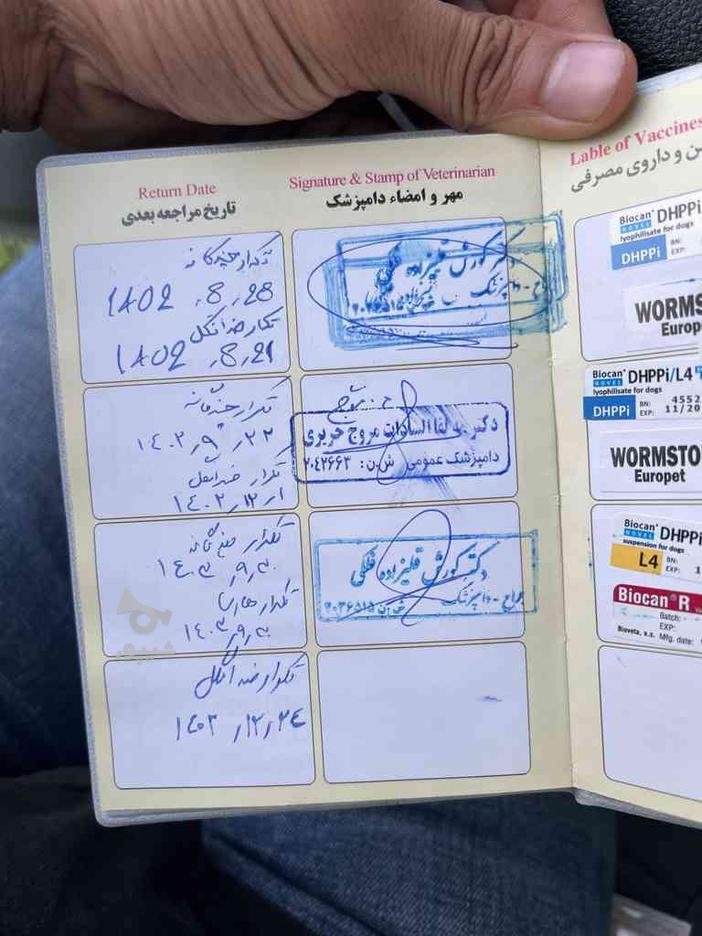 Return Date
تاریخ مراجعه بعدی
Signature & Stamp of Veterinarian
مهر و امضاء دامپزشک
Lable of Vaccines
ن و داروی مصرفی
تکرار چندگانه
1402 ,8,28
تکرار ضد انگل
1402 ,8,21
دکتر کورش قلیزاده
جراح - دامپزشک
Biocan DHPPi
NOVEL
lyophilisate for dogs
DHPPi
BN:
EXP:
WORMS
Europ
تکرار چندگانه
۱۴۰۲,۹,۲۲
تکرار ضد انگل
۱۴۰۲,۱۲,۱
السادات مروج حریری
دامپزشک عمومی ش.ن: ۲۰۴۲۶۶۳
Biocan DHPPi/L4
NOVEL
lyophilisate for dogs
DHPPi
BN: 4552
EXP: 11/20
WORMSTO
Europet
تکرار
۱۴۰۳,۹,۲۰
تکرار هاری
۱۴۰۳,۹,۲۰
دکتر کورش قلیزاده فلکی
جراح - دامپزشک
ش.ن ۲۰۳۶۵۱۵
Biocan DHPPi
NOVEL
suspension for dogs
L4
BN:
EXP: 1
Biocan R
Batch:
EXP:
Bioveta, a.s. Mfg. date:
شیپور
تکرار ضد انگل
۱۴۰۳,۱۲,۲۴